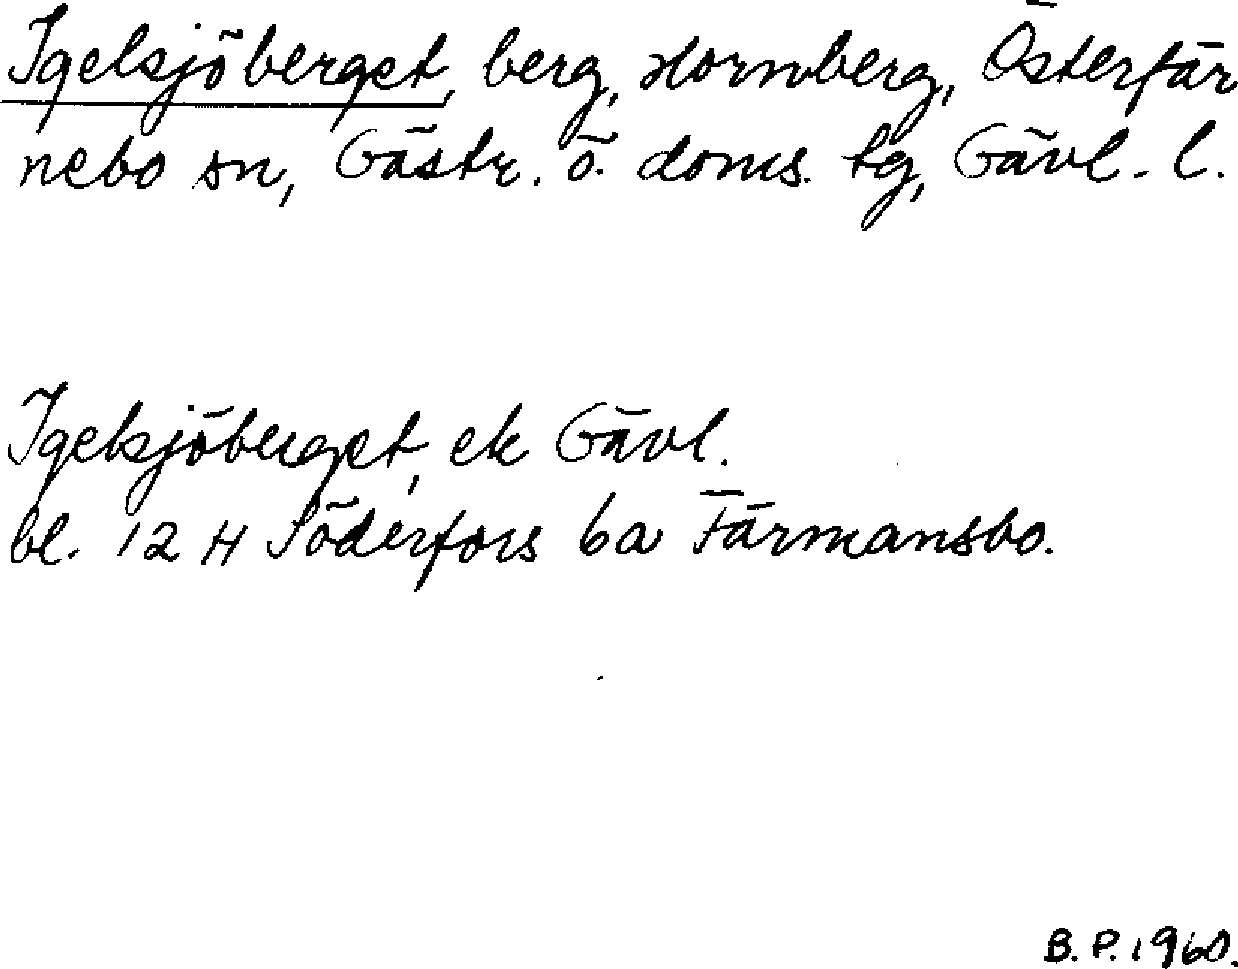 Igelsjöberget, berg, Hornberg, Österfär
nebo sn, Gästr. ö. doms. tg, Gävl. l.
Igelsjöberget, ek Gävl.
bl. 12 H Söderfors 6a Färmansbo.
B. P. 1960.